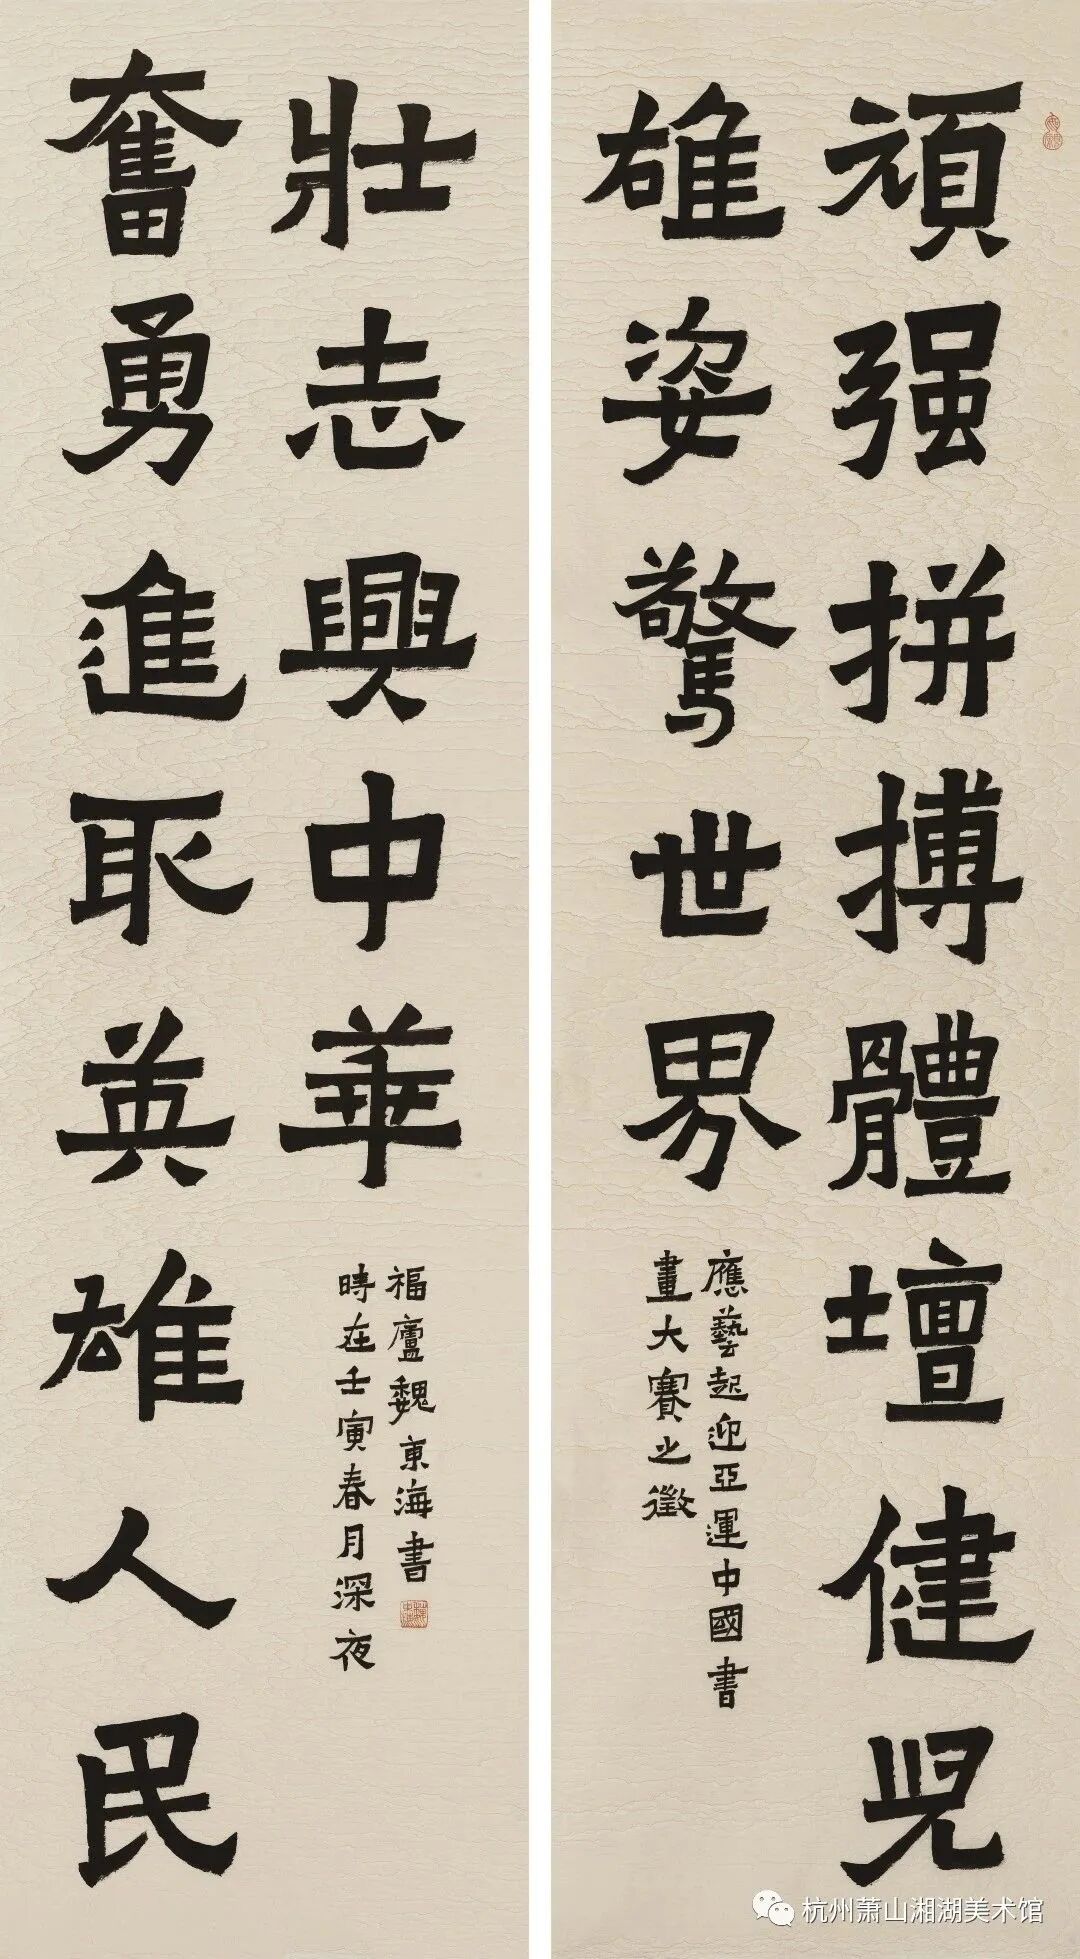 頑强拼搏體壇健兒
雄姿驚世界
應藝起迎亞運中國書
畫大賽之徵
奮勇進取英雄人民
壯志興中華
時在壬寅春月深夜
福廬魏東海書
杭州萧山湘湖美术馆